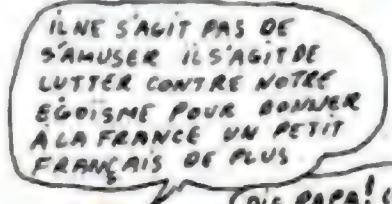 IL NE S'AGIT PAS DE
S'AMUSER IL S'AGIT DE
LUTTER CONTRE NOTRE
EGOÏSME POUR DONNER
A LA FRANCE UN PETIT
FRANÇAIS DE PLUS
PAPA!